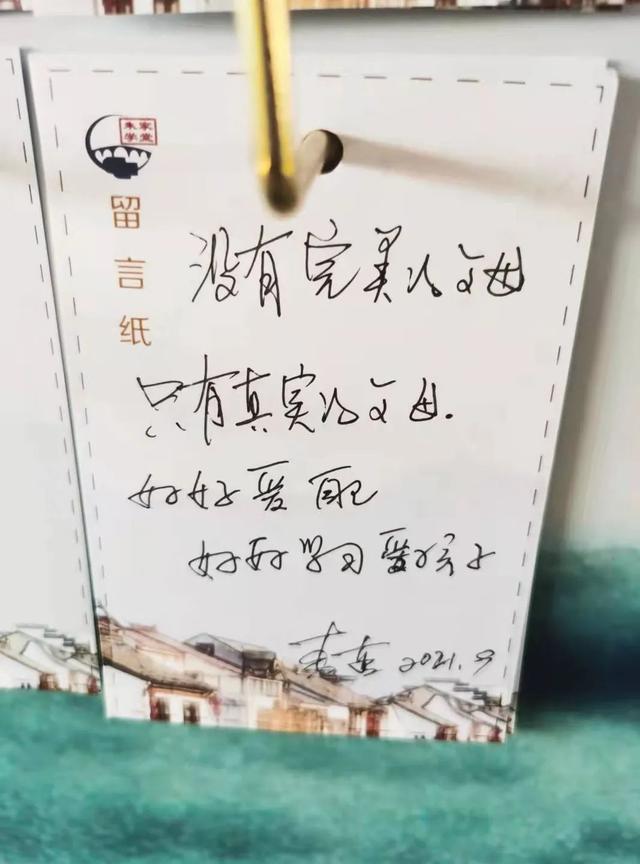 朱家
学堂
留言纸
没有完美的父母
只有真实的父母.
好好爱自己
好好学习爱孩子
2021.9